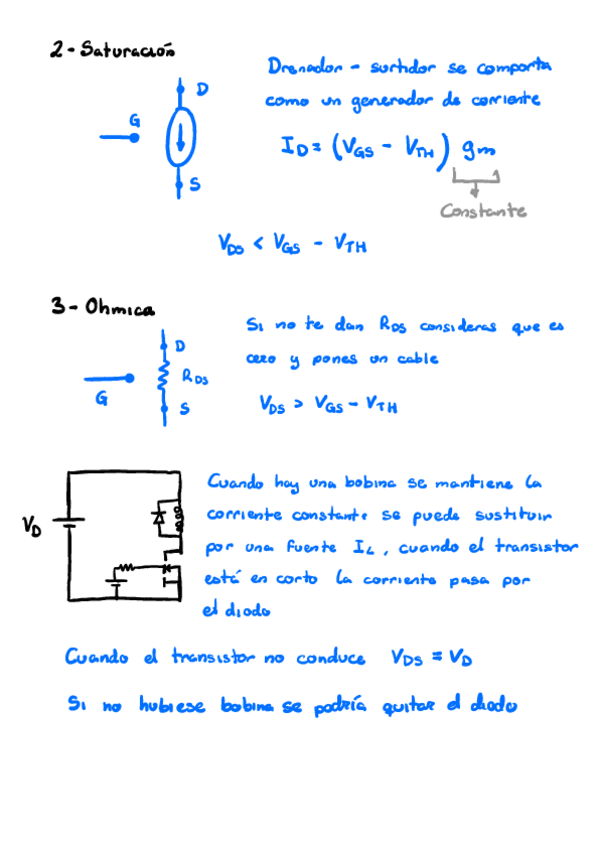 2 - Saturación
Drenador - surtidor se comporta
como un generador de corriente
D
G
S
I_D = (V_GS - V_TH) gm
Constante
V_DS < V_GS - V_TH
3 - Ohmica
Si no te dan R_DS consideras que es
cero y pones un cable
D
R_DS
G
S
V_DS > V_GS - V_TH
Cuando hay una bobina se mantiene la
corriente constante se puede sustituir
V_D
por una fuente I_L, cuando el transistor
está en corto la corriente pasa por
el diodo
Cuando el transistor no conduce V_DS = V_D
Si no hubiese bobina se podría quitar el diodo